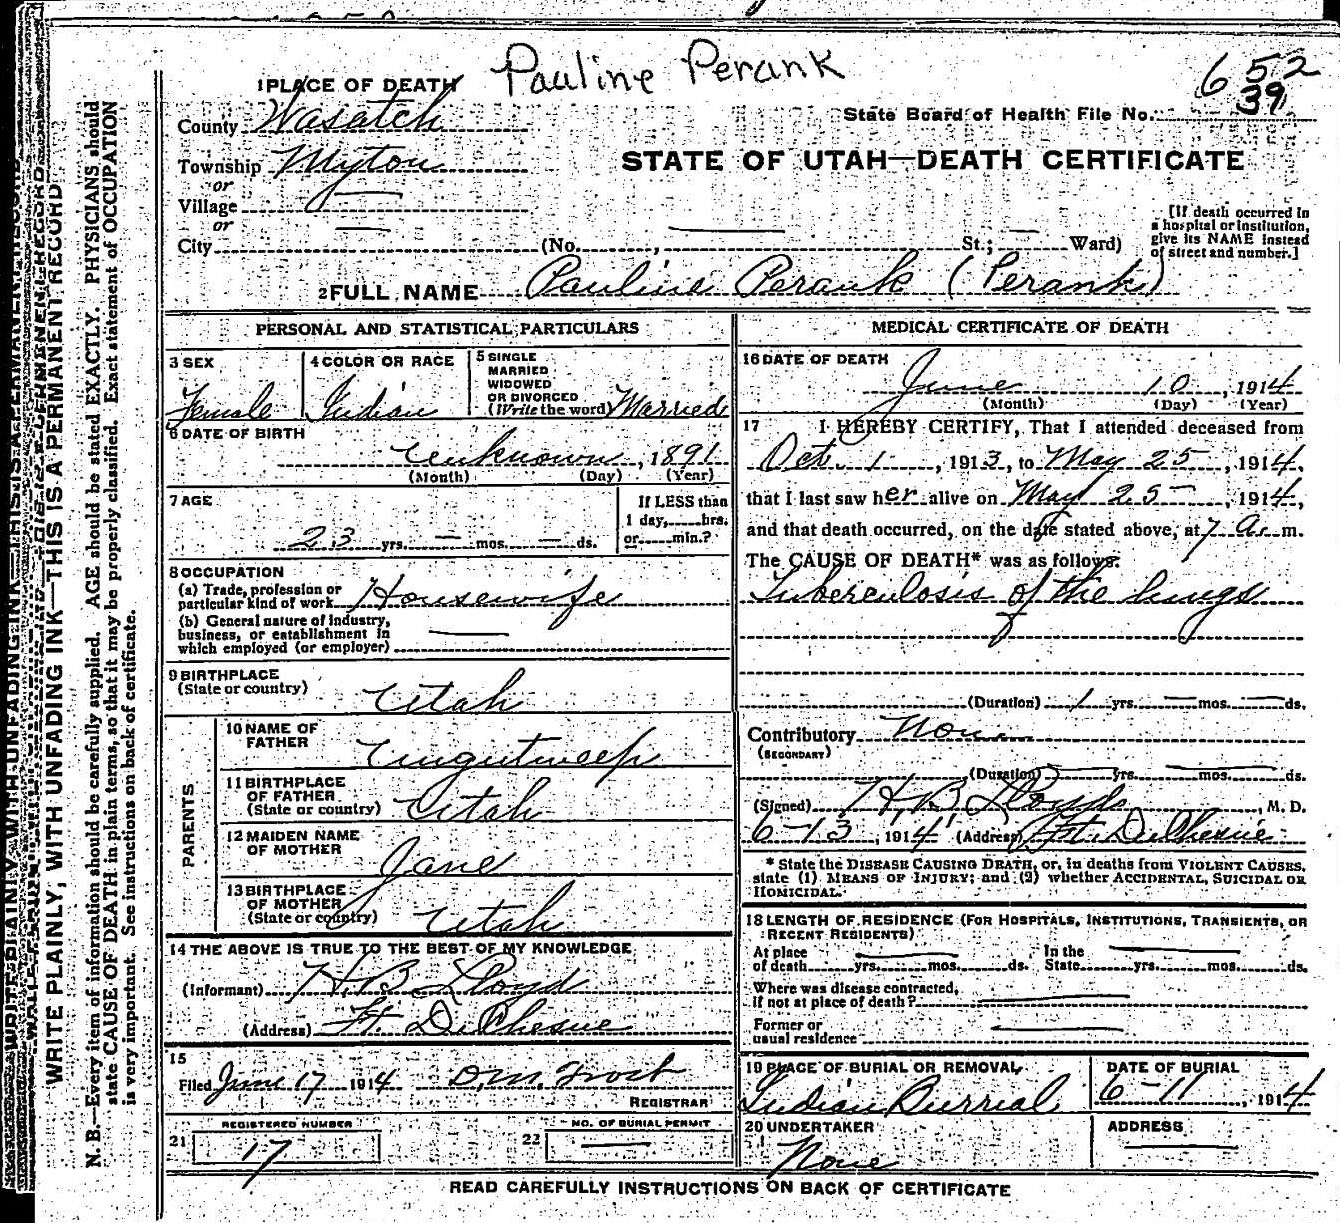 Pauline Perank
652
39
1 PLACE OF DEATH
County Wasatch
State Board of Health File No.
Township Myton
STATE OF UTAH—DEATH CERTIFICATE
or
Village
or
City (No. , St.; Ward)
[If death occurred in a hospital or institution, give its NAME instead of street and number.]
2 FULL NAME Pauline Perank (Perank)
PERSONAL AND STATISTICAL PARTICULARS
3 SEX
Female
4 COLOR OR RACE
Indian
5 SINGLE
MARRIED
WIDOWED
OR DIVORCED
(Write the word) Married
6 DATE OF BIRTH
Unknown , 1891
(Month) (Day) (Year)
7 AGE
23 yrs. — mos. — ds.
If LESS than
1 day, hrs.
or min.?
8 OCCUPATION
(a) Trade, profession or
particular kind of work Housewife
(b) General nature of industry,
business, or establishment in
which employed (or employer)
9 BIRTHPLACE
(State or country)
Utah
PARENTS
10 NAME OF
FATHER
11 BIRTHPLACE
OF FATHER
(State or country) Utah
12 MAIDEN NAME
OF MOTHER
Jane
13 BIRTHPLACE
OF MOTHER
(State or country) Utah
14 THE ABOVE IS TRUE TO THE BEST OF MY KNOWLEDGE
(Informant) H.B. Lloyd
(Address) Ft. DuChesne
15
Filed June 17 1914 D.M. Frost
REGISTRAR
21
REGISTERED NUMBER
17
22
NO. OF BURIAL PERMIT
MEDICAL CERTIFICATE OF DEATH
16 DATE OF DEATH
June 10, 1914
(Month) (Day) (Year)
17 I HEREBY CERTIFY, That I attended deceased from
Oct. 1, 1913, to May 25, 1914,
that I last saw her alive on May 25, 1914,
and that death occurred, on the date stated above, at 7 A. m.
The CAUSE OF DEATH* was as follows:
Tuberculosis of the lungs
(Duration) 1 yrs. — mos. — ds.
Contributory None
(SECONDARY)
(Duration) yrs. mos. ds.
(Signed) H.B. Lloyd, M. D.
6-13, 1914 (Address) Ft. DuChesne
* State the DISEASE CAUSING DEATH, or, in deaths from VIOLENT CAUSES,
state (1) MEANS OF INJURY; and (2) whether ACCIDENTAL, SUICIDAL OR
HOMICIDAL.
18 LENGTH OF RESIDENCE (FOR HOSPITALS, INSTITUTIONS, TRANSIENTS, OR
RECENT RESIDENTS)
At place
of death yrs. mos. ds.
In the
State yrs. mos. ds.
Where was disease contracted,
if not at place of death?
Former or
usual residence
19 PLACE OF BURIAL OR REMOVAL
Indian Burrial
DATE OF BURIAL
6-11, 1914
20 UNDERTAKER
None
ADDRESS
READ CAREFULLY INSTRUCTIONS ON BACK OF CERTIFICATE
WRITE PLAINLY, WITH UNFADING INK—THIS IS A PERMANENT RECORD
N. B.—Every item of information should be carefully supplied. AGE should be stated EXACTLY. PHYSICIANS should
state CAUSE OF DEATH in plain terms, so that it may be properly classified. Exact statement of OCCUPATION
is very important. See instructions on back of certificate.